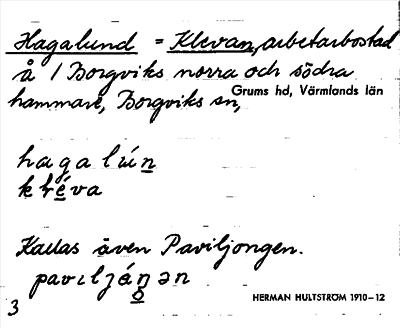 Hagalund = Klevan, arbetarbostad
å / Borgviks norra och södra
hammare, Borgviks sn,
Grums hd, Värmlands län
hagalún
kléva
Kallas även Paviljongen.
pavıljáŋən
3
HERMAN HULTSTRÖM 1910–12